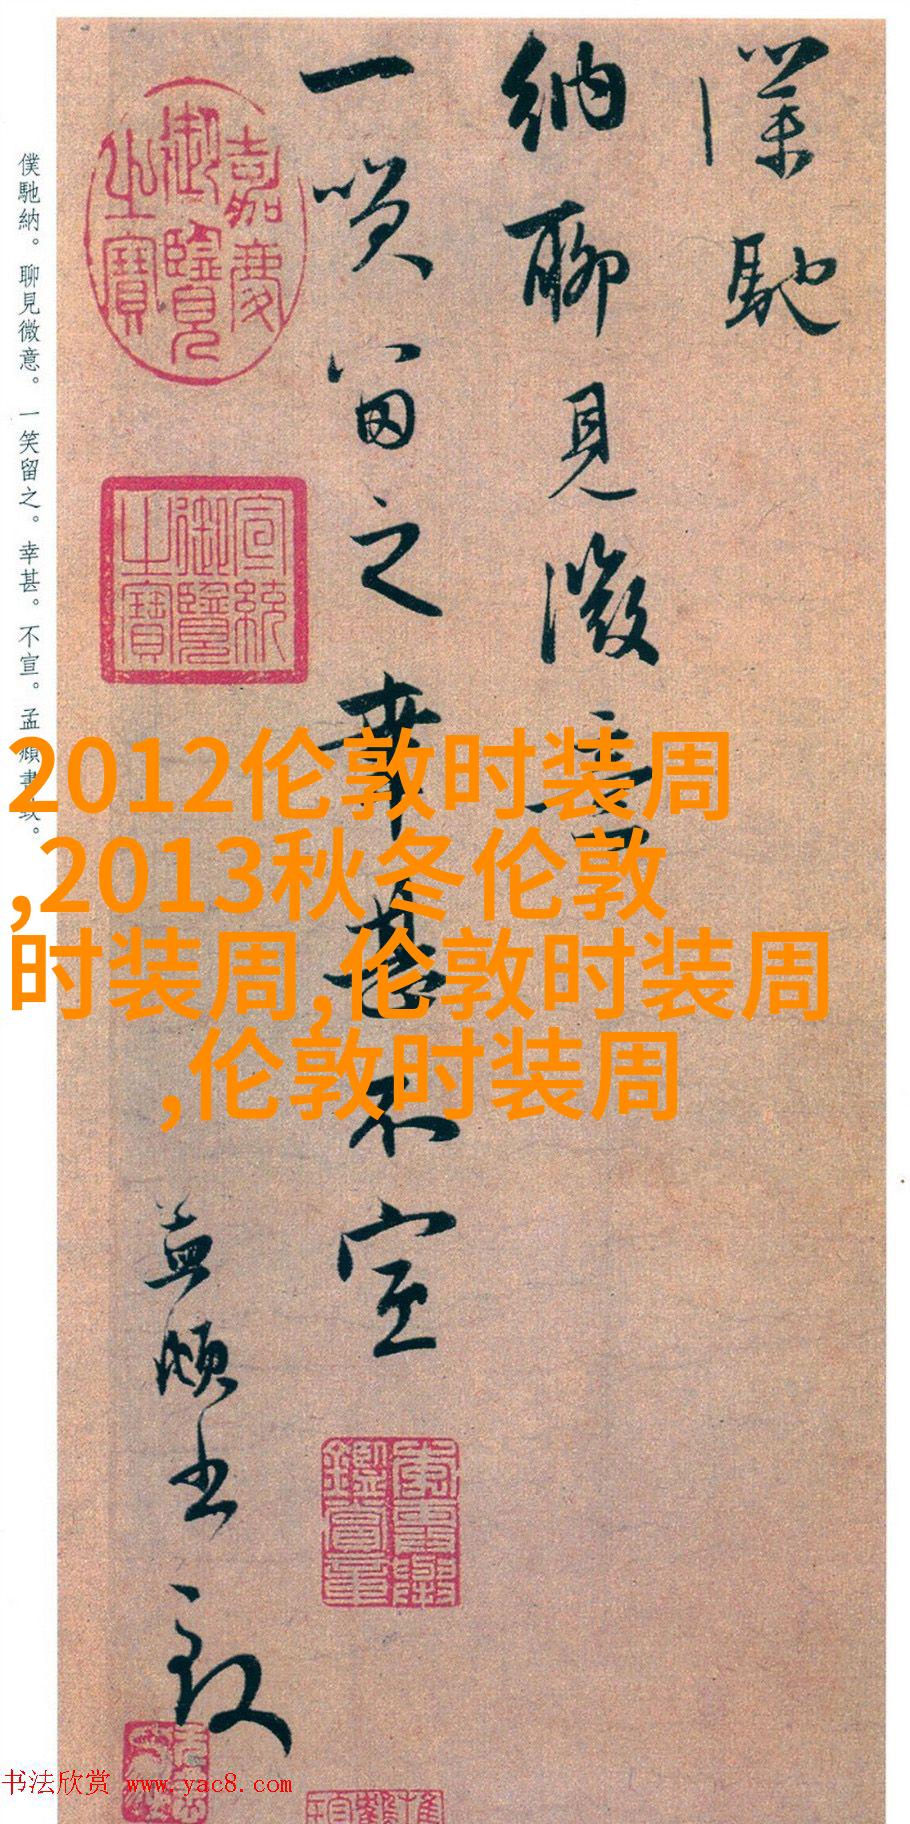 僕馳
納聊見微意
一笑留之幸甚不宣
孟頫書致
嘉慶御覽之寶
宣統御覽之寶
僕馳納。聊見微意。一笑留之。幸甚。不宣。孟頫書致。
2012伦敦时装周
,2013秋冬伦敦
时装周,伦敦时装周
,伦敦时装周
书法欣赏 www.yac8.com